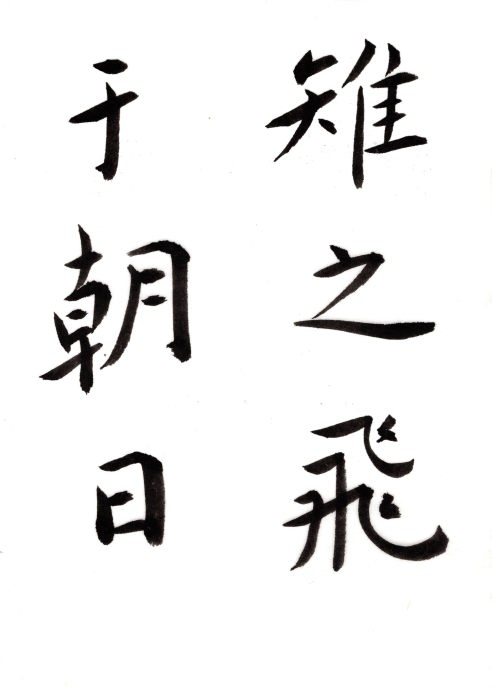 雉之飛
于朝日